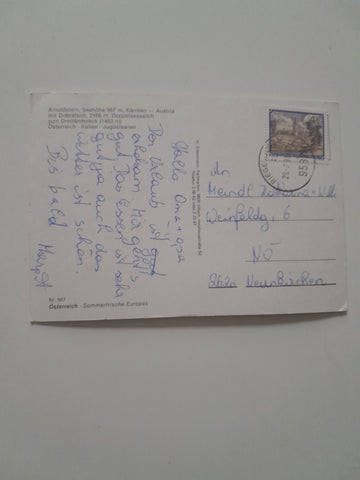 Arnoldstein, Seehöhe 567 m, Kärnten — Austria
mit Dobratsch, 2166 m, Doppelsessellift
zum Dreiländereck (1463 m)
Österreich - Italien - Jugoslawien
Hallo Oma + opa
Der Urlaub ist
erholsam. Mir geht's
gut. Das Essen ist sehr
gut, ja auch das
wetter ist schön.
Bis bald
Nr. 567
Österreich - Sommerfrische Europas
9587
An
Weinfeldg. 6
NÖ
2620 Neunkirchen